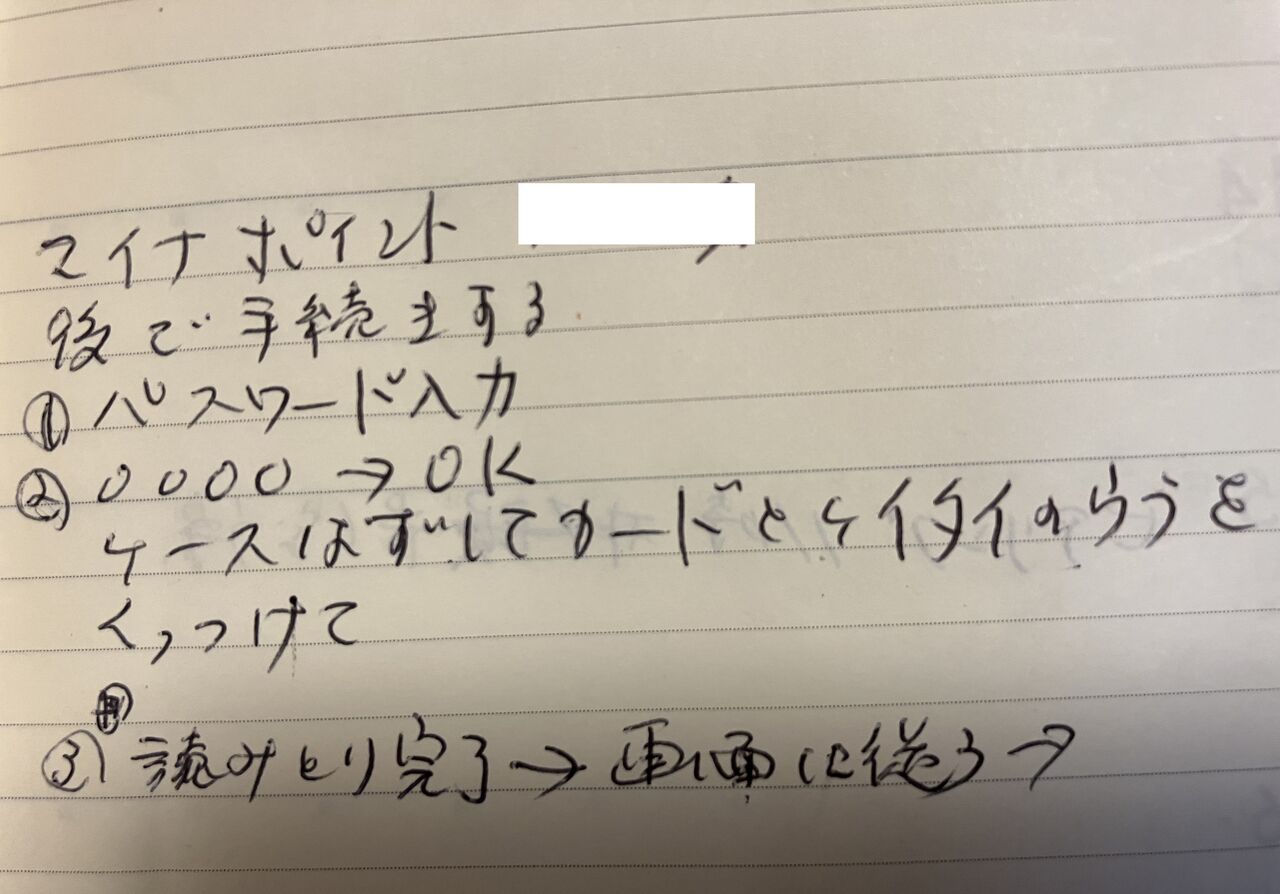 マイナポイント
後で手続きする
① パスワード入力
② 0000 → OK
ケースはずしてカードとケイタイのうらうを
くっつけて
③ 読みとり完了 → 画面に従う →